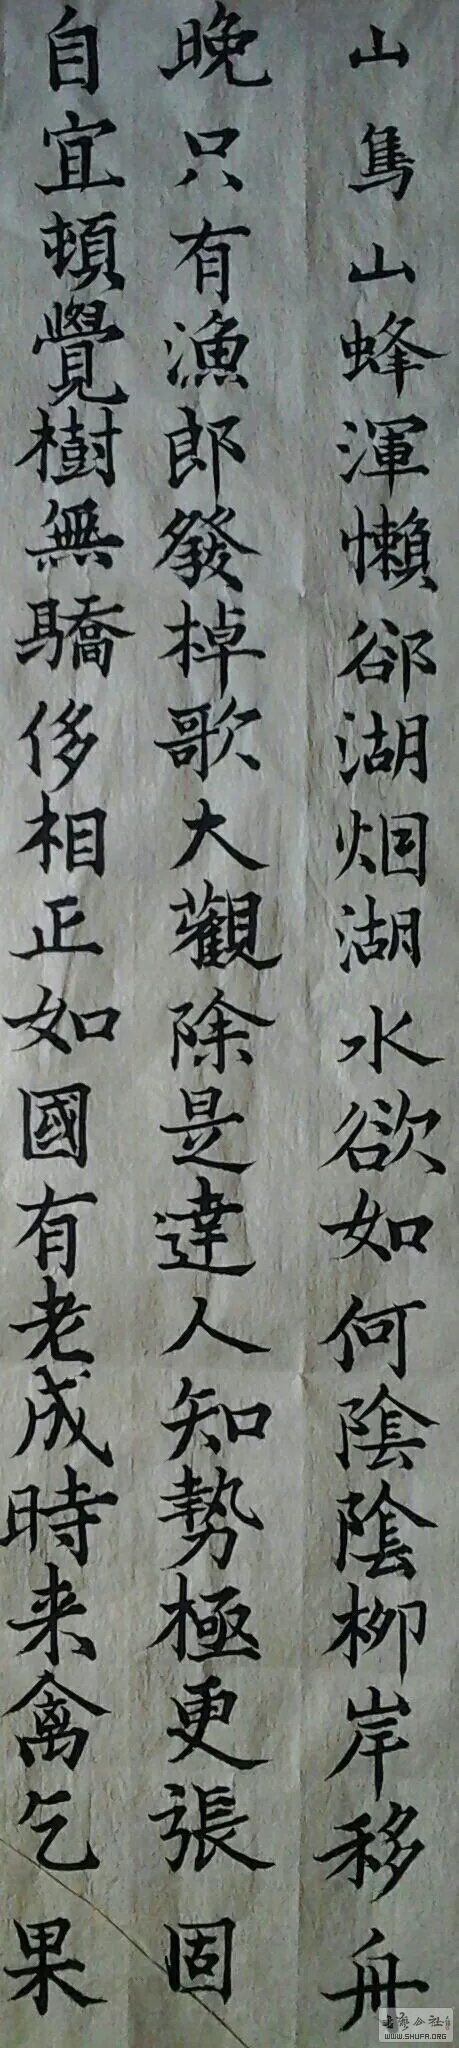 山隽山蜂渾懶郤湖烟湖水欲如何陰陰柳岸移舟
晚只有漁郎發棹歌大觀除是達人知勢極更張固
自宜頓覺樹無驕侈相正如國有老成時来禽乞果
WWW.SHUFA.ORG